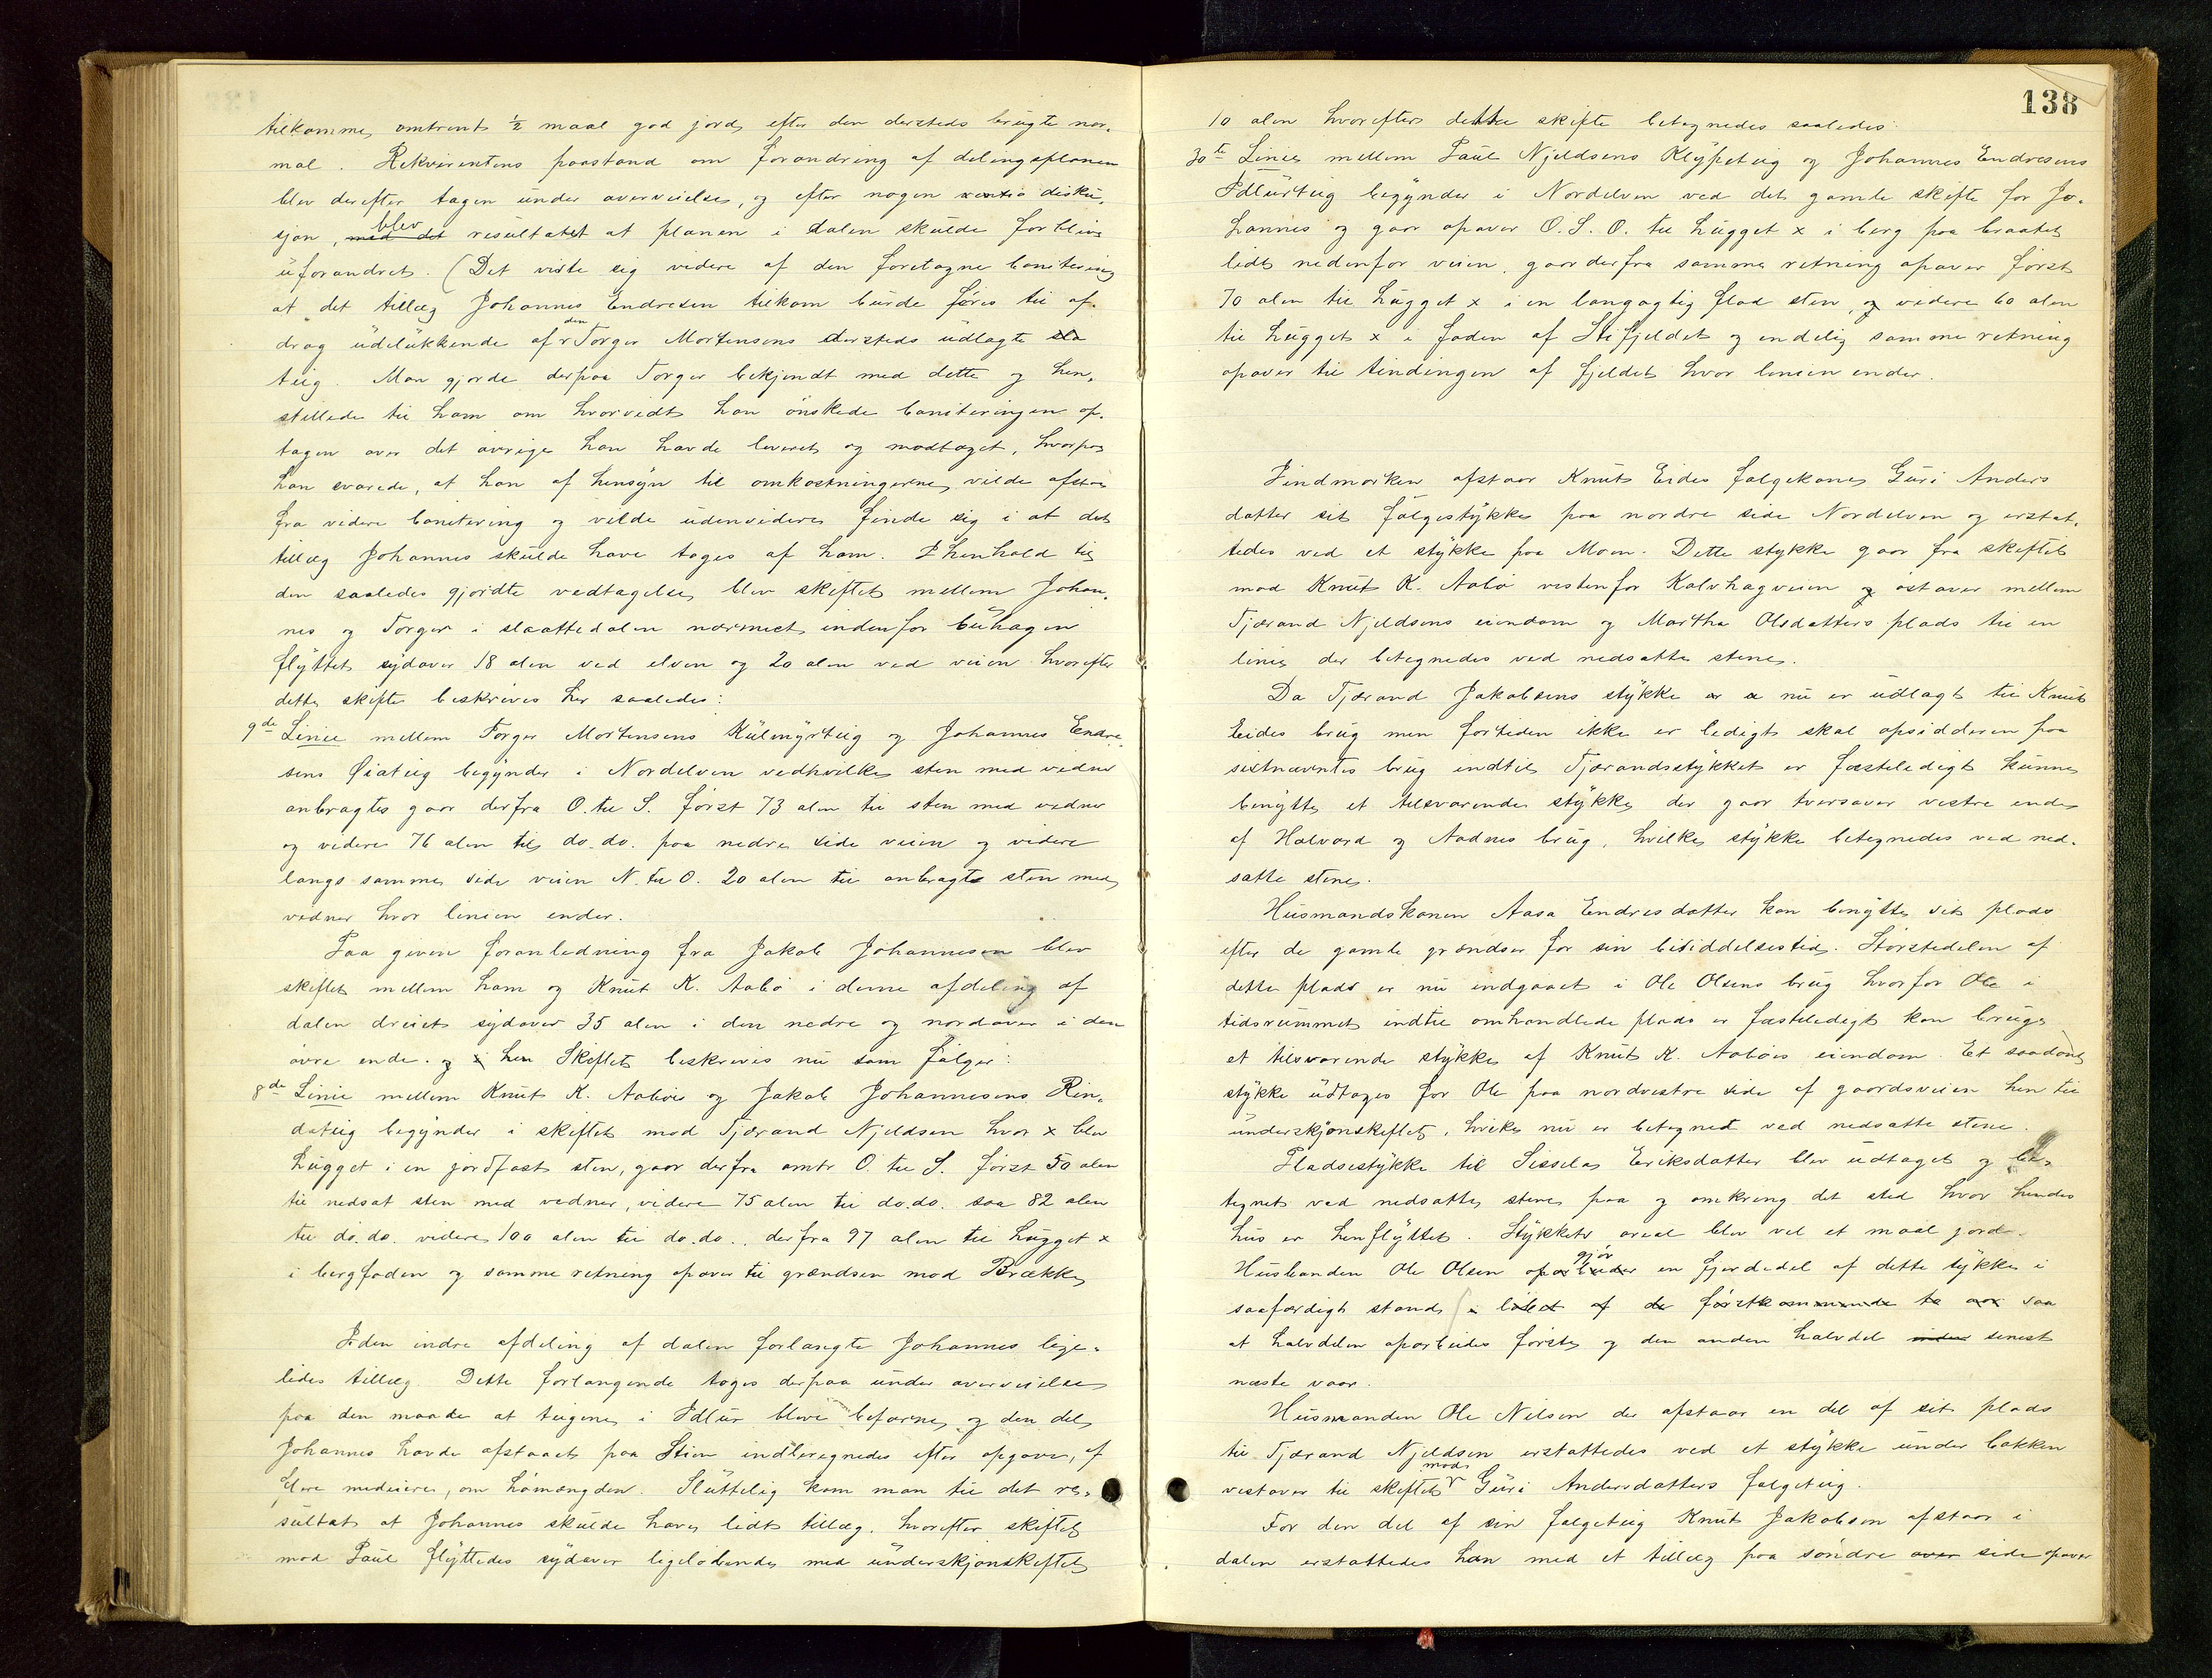 tilkomme, omtrent ½ maal god jord, efter den dersteds brugte nor-
mal. Rekvirentens paastand om forandring af delingsplanen
blev derefter tagen under overveielse, og efter nogen disku-
sjon, blev resultatet at planen i dalen skulde forblive
uforandret. (Det viste sig videre af den foretagne bonitering
at det tillæg Johannes Endresen tilkom burde føres til af-
drag udelukkende af den Torger Mortensens dersteds udlagte
teig. Man gjorde derpaa Torger bekjendt med dette og hen-
stillede til ham om hvorvidt han ønskede boniteringen op-
tagen over det øvrige han havde leveret og modtaget, hvorpaa
han svarede, at han af hensyn til omkostningerne, vilde afstaa
fra videre bonitering og vilde udenvidere finde sig i at det
tillæg Johannes skulde have toges af ham. I henhold til
den saaledes gjordte vedtagelse, blev skiftet mellem Johan-
nes og Torger i slaattedalen nærmest indenfor buhagen
flyttet sydover 18 alen ved elven og 20 alen ved veien hvorefter
dette skifte beskrives her saaledes:
9de Linie mellem Torger Mortensens Kulmyrteig og Johannes Endre-
sens Øiateig begynder i Nordelven vedhvilke sten med vidner
anbragtes gaar derfra O. til S. først 73 alen til sten med vidner
og videre 76 alen til do. do. paa nedre side veien og videre
langs samme side veien N. til O. 20 alen til anbragte sten med
vidner hvor linien ender.
Paa given foranledning fra Jakob Johannesen blev
skiftet mellem ham og Knut K. Aabø i denne afdeling af
dalen dreiet sydover 35 alen i den nedre og nordover i den
øvre ende. og hen Skiftet beskrives nu som følger:
8de Linie mellem Knut K. Aabøes og Jakob Johannesens Rin-
dateig begynder i skiftet mod Tjærand Njeldsen hvor x blev
hugget i en jordfast sten, gaar derfra omtr O. til S. først 50 alen
til nedsat sten med vidner, videre 75 alen til do. do. saa 82 alen
til do. do. videre 100 alen til do. do., derfra 97 alen til hugget x
i bergfoden og samme retning opover til grændsen mod Brække,
I den indre afdeling af dalen forlangte Johannes lige-
ledes tillæg. Dette forlangende toges derpaa under overveielse
paa den maade at teigene i Idlur bleve befarne, og den del,
Johannes havde afstaaet paa Stien indberegnedes efter opgave, af
flere medeiere, om hømængden. Sluttelig kom man til det re-
sultat at Johannes skulde have lidt tillæg. hvorefter skiftet
mod Paul flyttedes sydover ligeløbende med underskjønskiftet
138
10 alen hvorefter dette skifte betegnedes saaledes:
30te Linie mellem Paul Njeldsens Klypeteig og Johannes Endresens
Idlurteig begynder i Nordelven ved det gamle skifte for Jo-
hannes og gaar opover O. S. O. til hugget x i berg paa braatet
lidt nedenfor veien, gaar derfra samme retning opover først
70 alen til hugget x i en langagtig flad sten, og videre 60 alen
til hugget x i foden af Stifjeldet og endelig samme retning
opover til tindingen af fjeldet hvor linien ender.
I indmarken afstaar Knut Eides følgekone, Guri Anders
datter sit følgestykke paa nordre side Nordelven og erstat-
tedes ved et stykke paa Moen. Dette stykke gaar fra skiftet
mod Knut K. Aabø vestenfor Kalvhagveien og østover mellem
Tjærand Njeldsens eiendom og Martha Olsdatters plads til en
linie der betegnedes ved nedsatte stene.
Da Tjærand Jakobsens stykke nu er udlagt til Knut
Eides brug men fortiden ikke er ledigt skal opsidderen paa
sistnævnte brug indtil Tjærandsstykket er fæsteledigt kunne
benytte et tilsvarende stykke der gaar tversover vestre ende
af Halvard og Aadnes brug, hvilke stykke betegnedes ved ned-
satte stene.
Husmandskonen Aasa Endresdatter kan benytte sit plads
efter de gamle grændser for sin besiddelsestid. Størstedelen af
dette plads er nu indgaaet i Ole Olsens brug hvorfor Ole i
tidsrummet indtil omhandlede plads er fæsteledigt kan bruge
et tilsvarende stykke af Knut K. Aabøes eiendom. Et saadant
stykke udtages for Ole paa nordvestre side af gaardsveien hen til
underskjønskiftet, hvilke nu er betegnet ved nedsatte stene.
Pladsestykke til Sissela Eriksdatter blev udtaget og be-
tegnet ved nedsatte stene paa og omkring det sted hvor hendes
hus er henflyttet. Stykkets areal blev vel et maal jord.
Husbonden Ole Olsen opar gjør en fjerdedel af dette stykke i
saafærdigt stand, i løbet af de førstkommende to aar saa
at halvdelen oparbeides først, og den anden halvdel inden senest
næste vaar.
Husmanden Ole Nilsen der afstaar en del af sit plads
til Tjærand Njeldsen erstattedes ved et stykke under bakken
vestover til skiftet mod Guri Andersdatters følgeteig.
For den del af sin følgeteig Knut Jakobsen afstaar i
dalen erstattedes han med et tillæg paa søndre over side opover